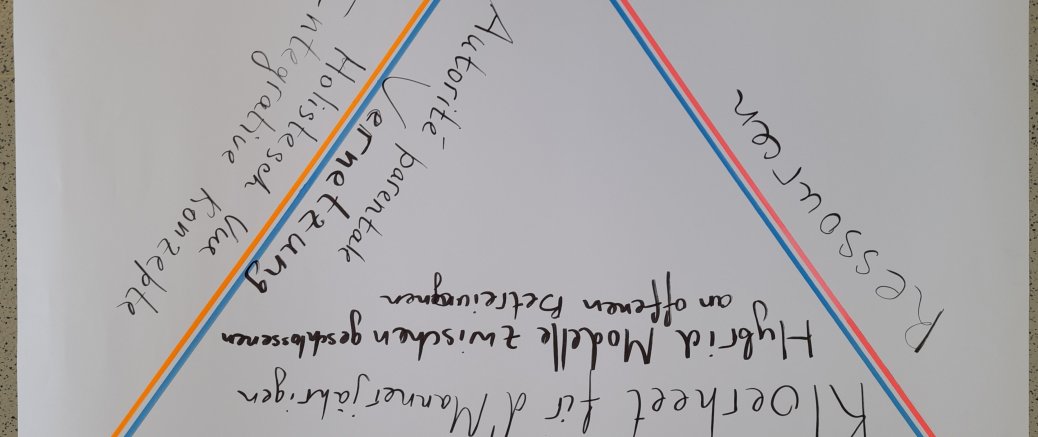 Kloerheet fir d'Mannerjährigen
Hybrid Modelle zwischen geschlossenen
an offenen
Autorité parentale
Vernetzung
Holistesch Vue
Integrative Konzepte
Ressourcen